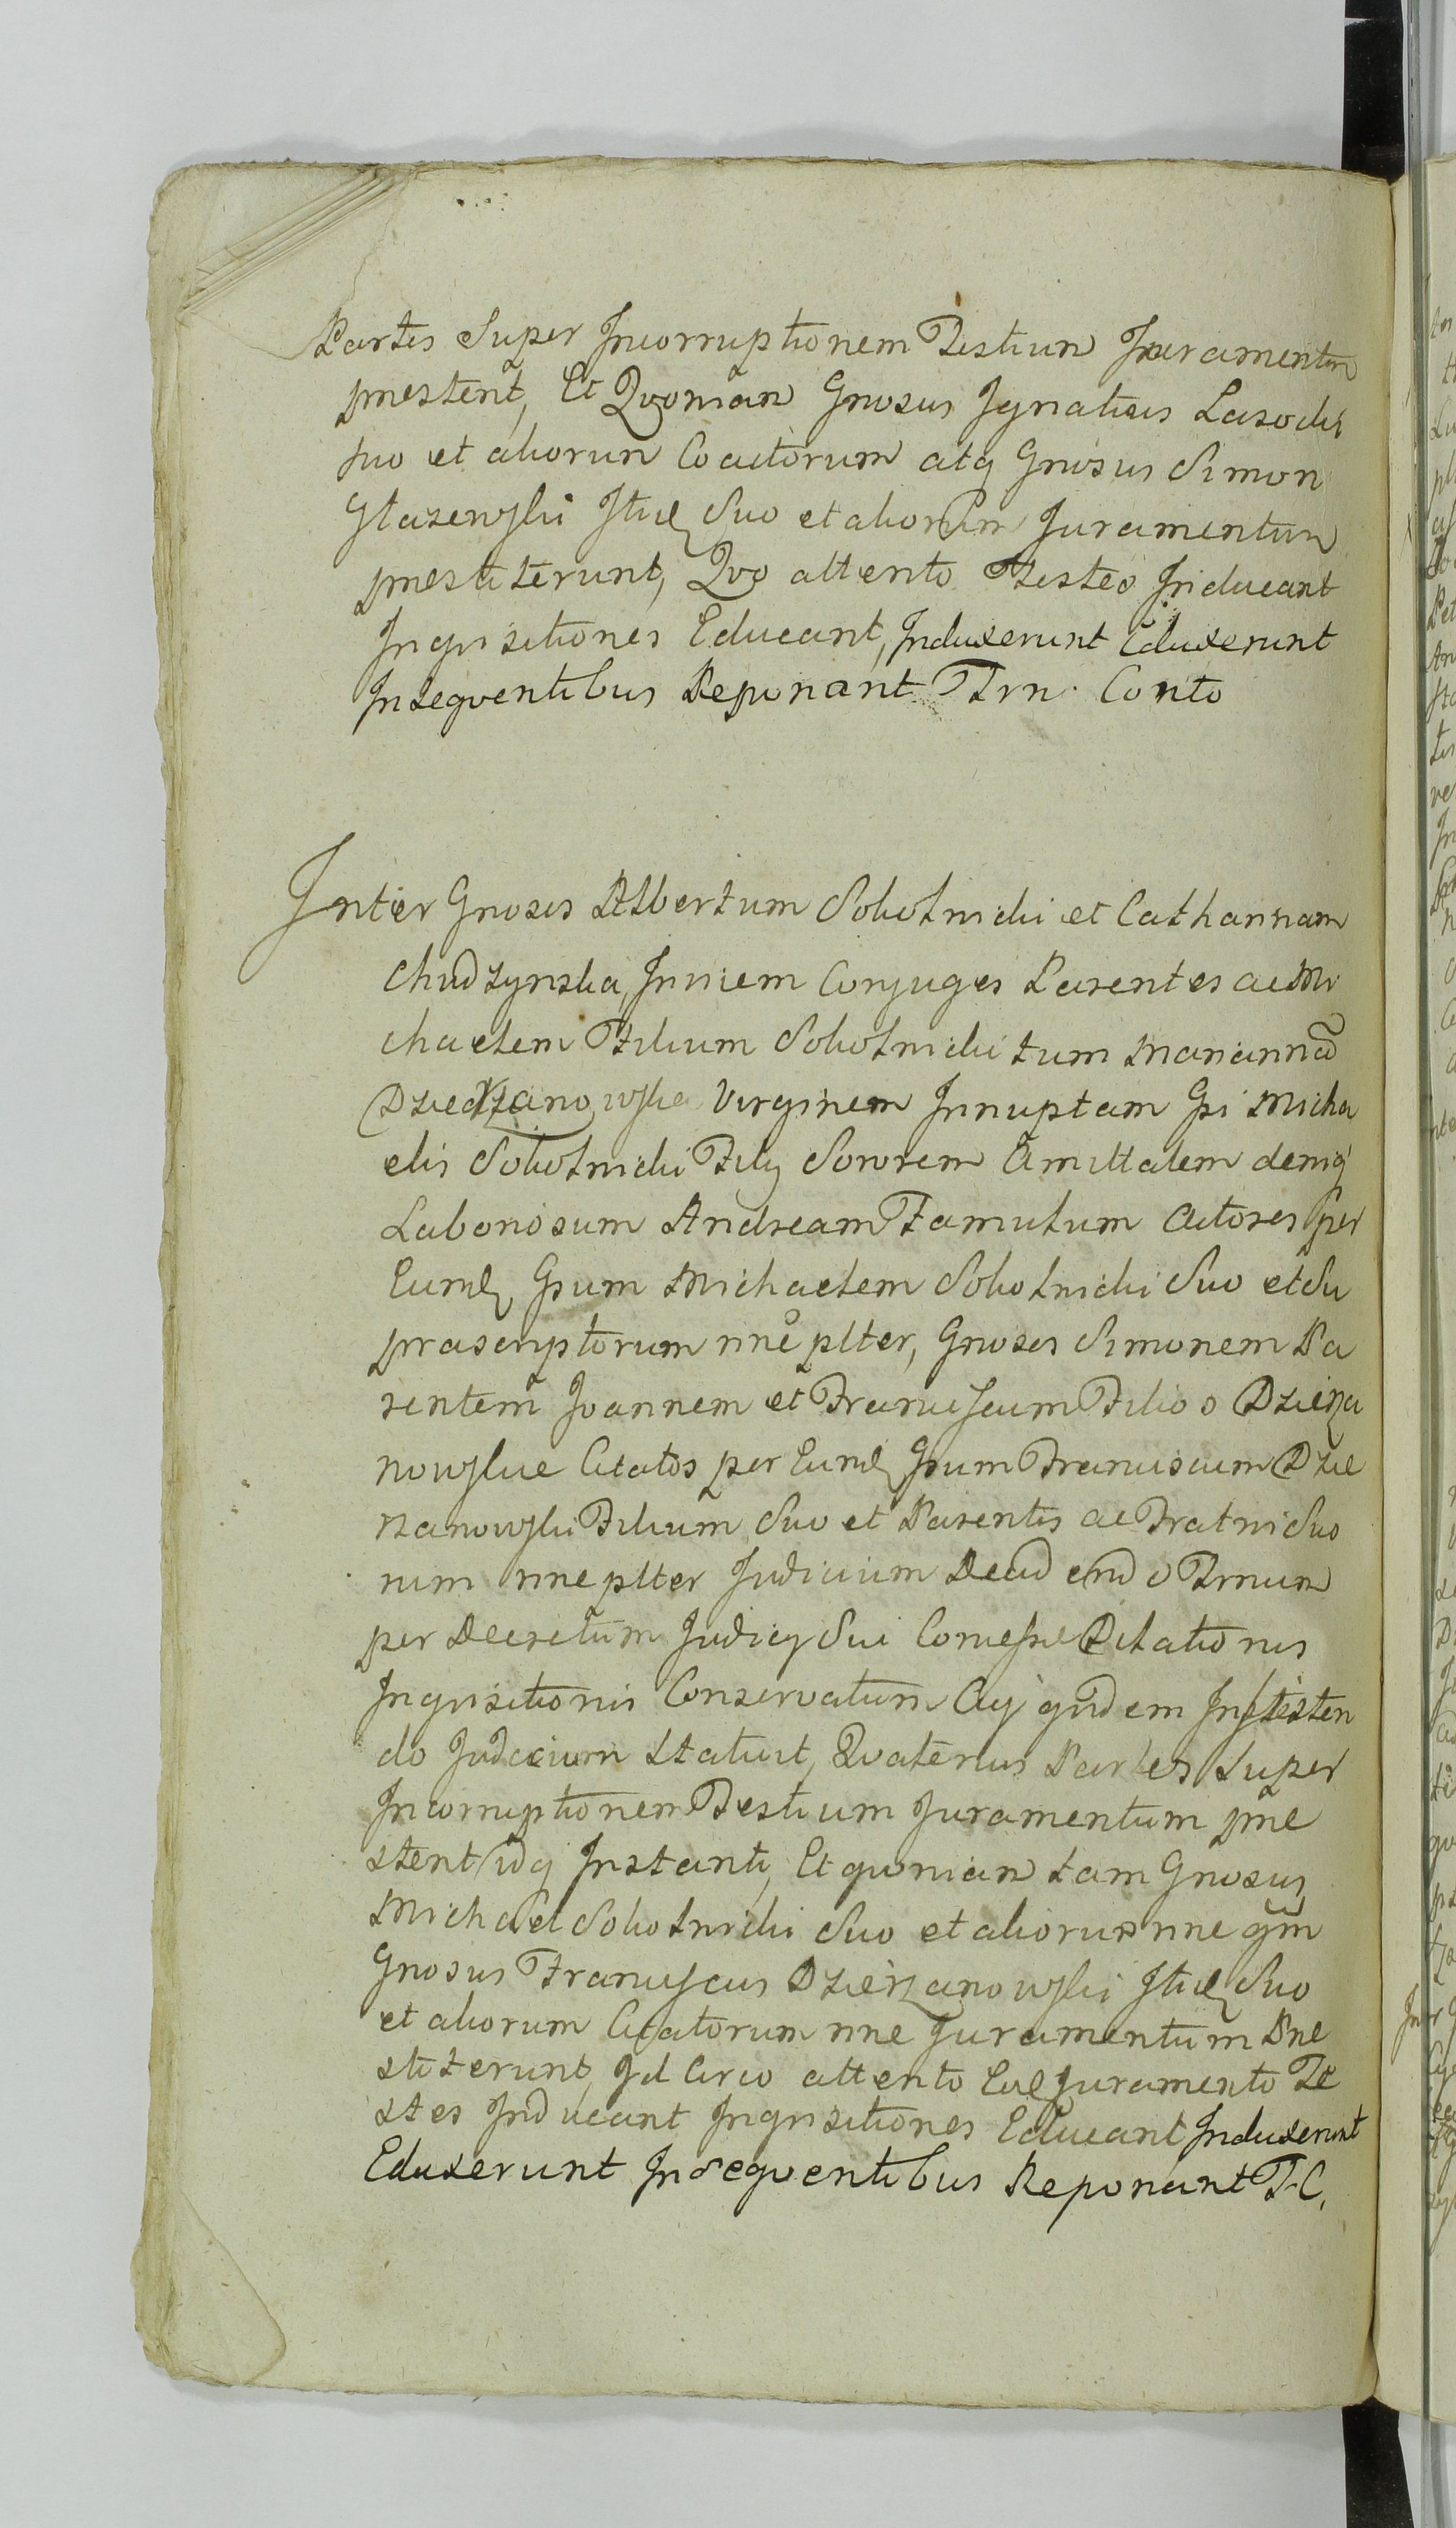 Partes Super Incorruptionem Testium Juramentum
pnestent, Et Qvoniam Gnosus Ignatius Lasocki
suo et aliorum Coactorum atq Gnosus Simon
Itid Suo et aliorum Juramentum
pnestiterunt, Qvo attento Testes Inducant
Inqvisitiones Educant, Induxerunt Eduxerunt
Inseqventibus Reponant Trn. Conto
Inter Gnosos Albertum Sokolnicki et Catharinam
Chudzynska, Invicem Conjuges Parentes ac Mi
chaelem Filium Sokolnicki tum Mariannā
Virginem Innuptam Gsi Micha
elis Sokolnicki Filij Sororem Amittalem deniq
Laboriosum Andream Famulum Actores per
Eumd Gsum Michaelem Sokolnicki Suo et Su
prascriptorum nne plter, Gnosos Simonem Pa
rentem Joannem et Franciscum Filios Dzierza
nowskie Citatos per Eumd Gsum Franciscum Dzie
rzanowski Filium Suo et Parentis ac Fratris Suo
rum nne plter Judicium Dead end o Trnum
per Decretum Judicij Sui Dilationis
Inqvisitionis Conservatum Cuj qvidem Insisten
do Judicium Statuit, Qvatenus Partes Super
Incorruptionem Testium Juramentum pne
stent idq Instanti, Et qvoniam tam Gnosus
Michael Sokolnicki Suo et aliorum nne qm
Gnosus Franciscus Dzierzanowski Itid Suo
et aliorum Citatorum nne Juramentum Pne
stiterunt, Id Circo attento Eod Juramento Te
stes Inducant Inqvisitiones Educant Induxerunt
Eduxerunt Inseqventibus Reponant T. C.